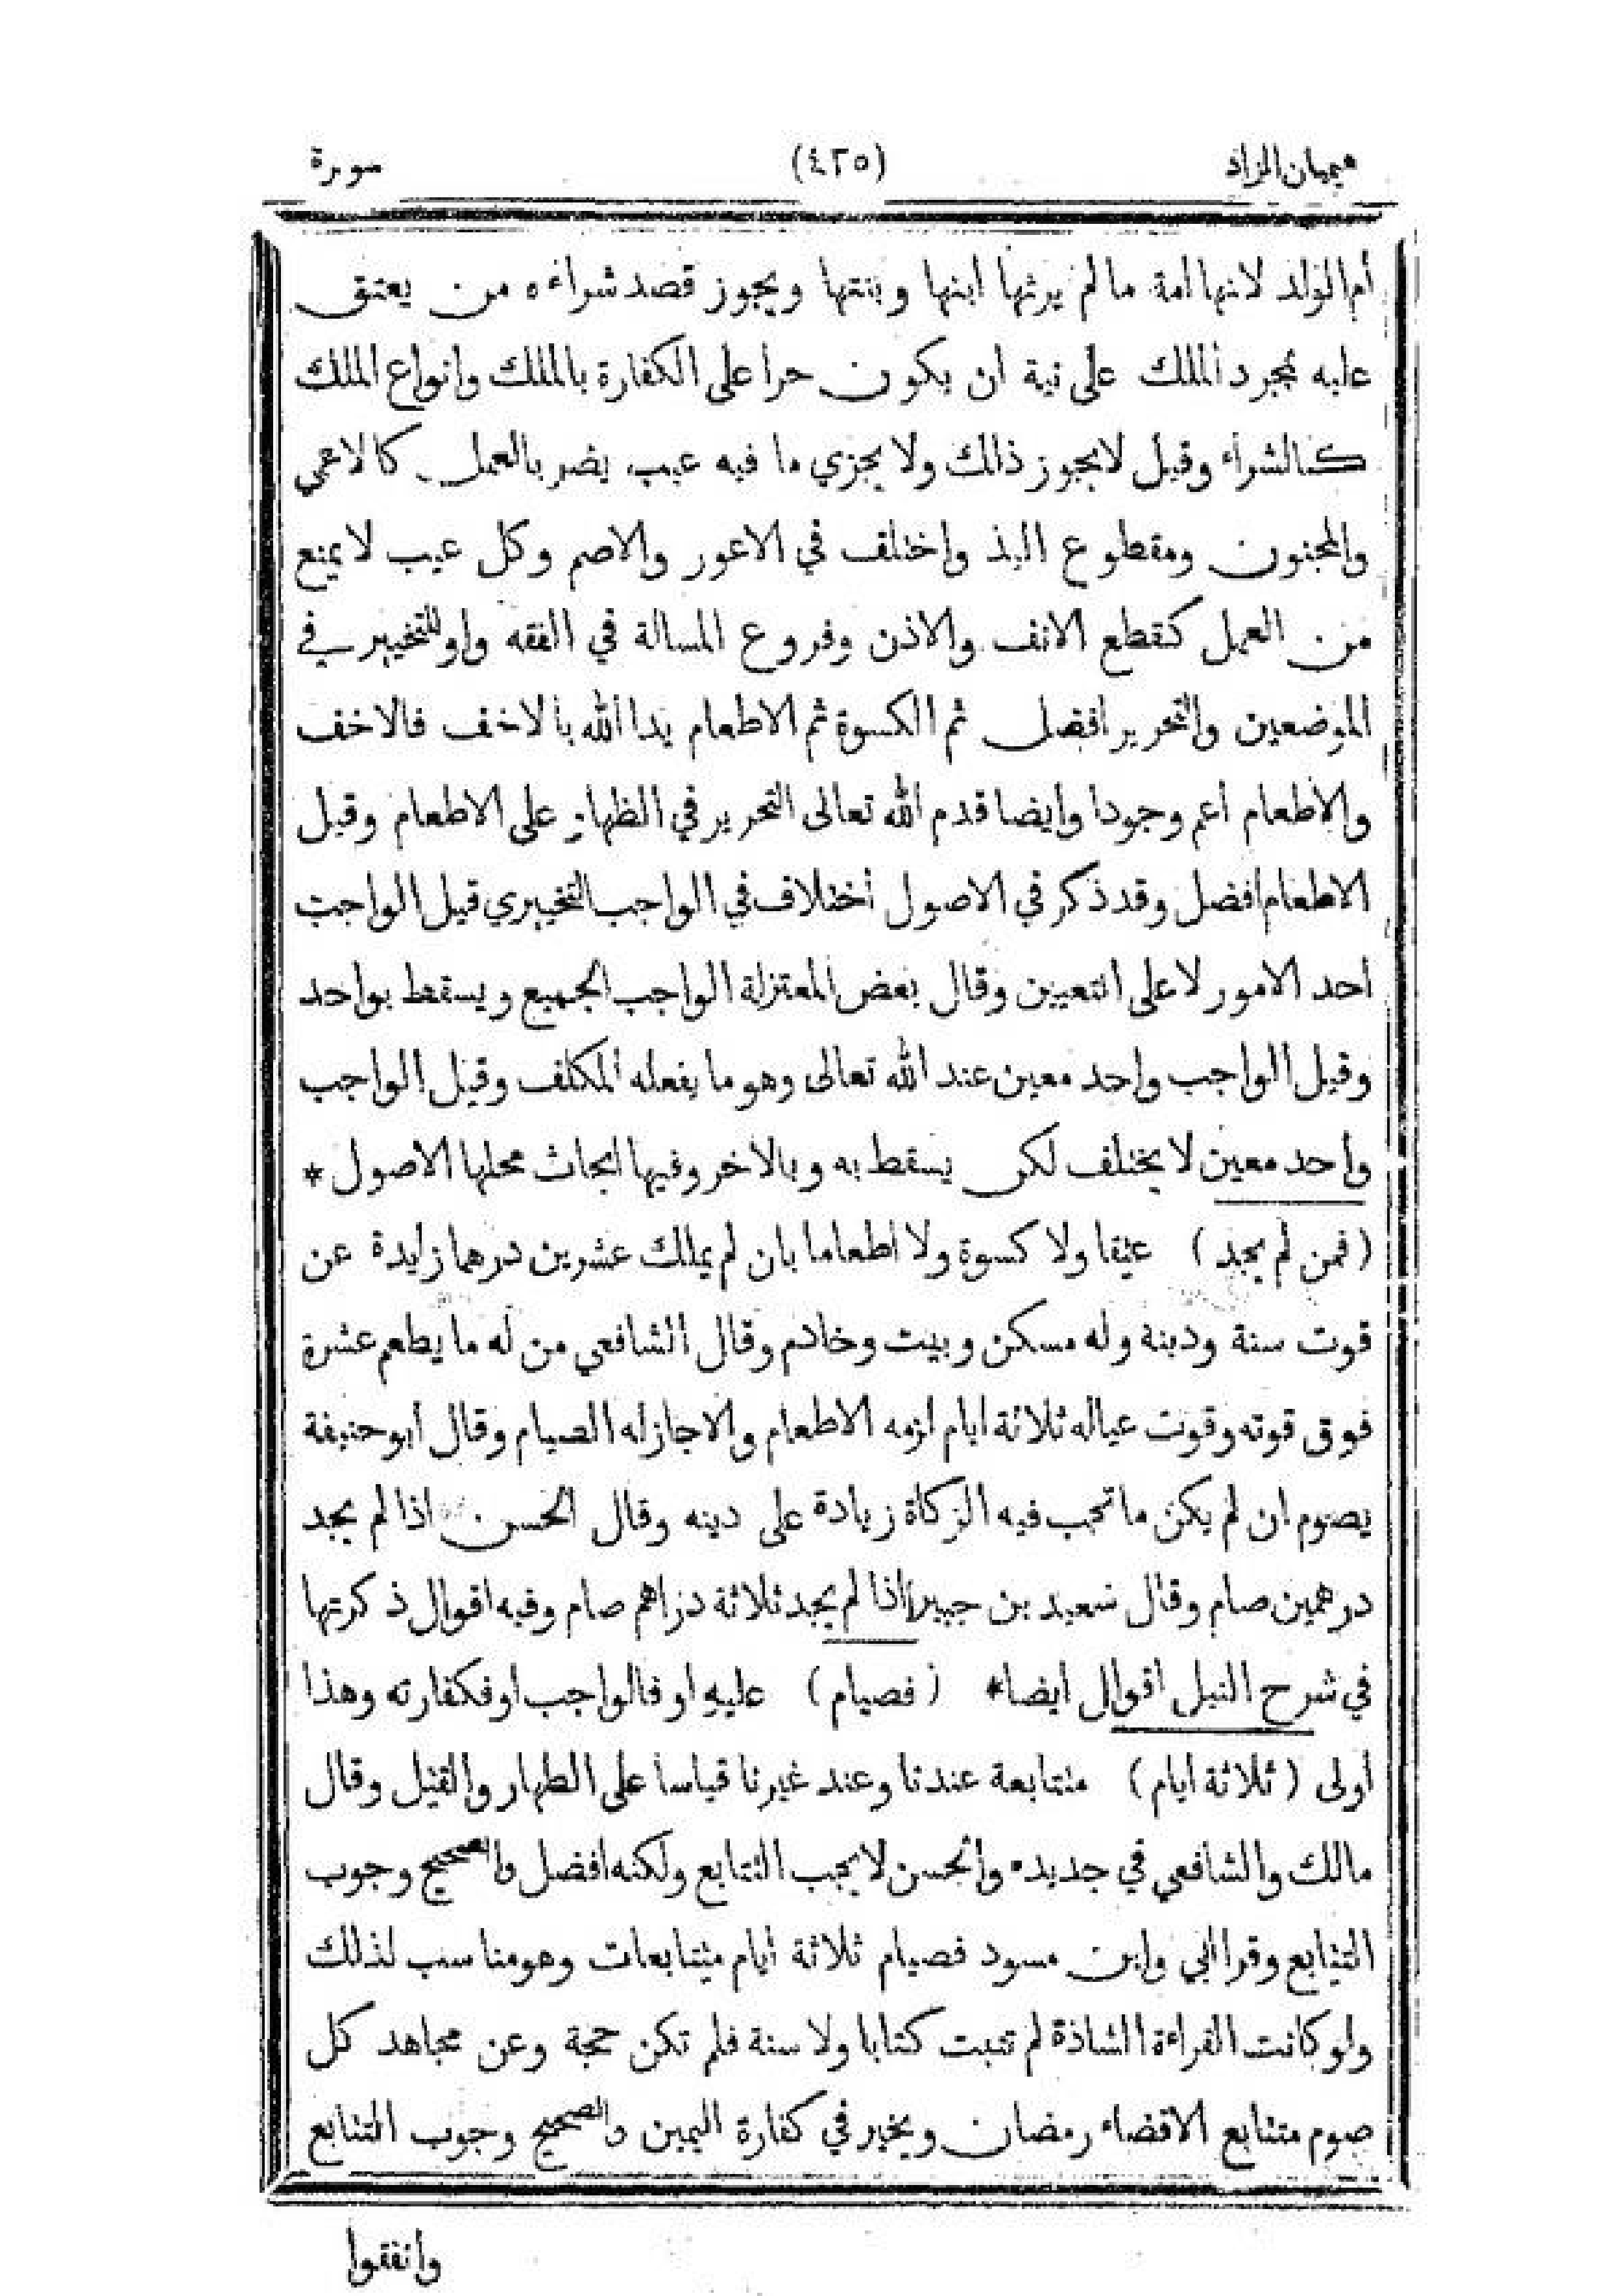 هميان الزاد (٤٢٥) سورة
أم الولد لانها امة ما لم يرثها ابنها وبنتها ويجوز قصد شراءه من يعتق
عليه بمجرد الملك على نية ان يكون حرا على الكفارة بالملك وانواع الملك
كالشراء وقيل لا يجوز ذلك ولا يجزي ما فيه عيب يضر بالعمل كالاعمى
والمجنون ومقطوع اليد واختلف في الاعور والاصم وكل عيب لا يمنع
من العمل كقطع الانف والاذن وفروع المسالة في الفقه واو للتخيير في
الموضعين والتحرير افضل ثم الكسوة ثم الاطعام بدا الله بالاخف فالاخف
والاطعام أعم وجودا وأيضا قدم الله تعالى التحرير في الظهار على الاطعام وقيل
الاطعام افضل وقد ذكر في الاصول أختلاف في الواجب التخييري قيل الواجب
أحد الامور لا على التعيين وقال بعض المعتزلة الواجب الجميع ويسقط بواحد
وقيل الواجب واحد معين عند الله تعالى وهو ما يفعله المكلف وقيل الواجب
واحد معين لا يختلف لكن يسقط به وبالاخر وفيها ابحاث محلها الاصول *
(فمن لم يجد) عتقا ولا كسوة ولا اطعاما بان لم يملك عشرين درهما زايدة عن
قوت سنة ودينة وله مسكن وبيت وخادم وقال الشافعي من له ما يطعم عشرة
فوق قوته وقوت عياله ثلاثة ايام لزمه الاطعام والا جاز له الصيام وقال أبو حنيفة
يصوم ان لم يكن ما تجب فيه الزكاة زيادة على دينه وقال الحسن اذا لم يجد
درهمين صام وقال سعيد بن جبير اذا لم يجد ثلاثة دراهم صام وفيه اقوال ذكرتها
في شرح النيل اقوال ايضا * (فصيام) عليه او فالواجب او فكفارته وهذا
أولى (ثلاثة ايام) متتابعة عندنا وعند غيرنا قياسا على الظهار والقتل وقال
مالك والشافعي في جديده والحسن لا يجب التتابع ولكنه افضل والصحيح وجوب
التتابع وقرا ابي وابن مسود فصيام ثلاثة أيام متتابعات وهو مناسب لذلك
ولو كانت القراءة الشاذة لم تثبت كتابا ولا سنة فلم تكن حجة وعن مجاهد كل
صوم متتابع الا قضاء رمضان ويخير في كفارة اليمين والصحيح وجوب التتابع
وانفقوا